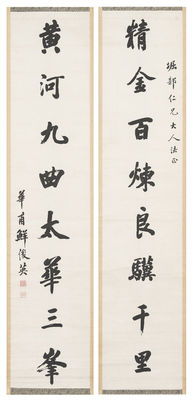 精金百煉良驥千里
堀部仁兄大人法正
黄河九曲太華三峯
華甫鮮俊英